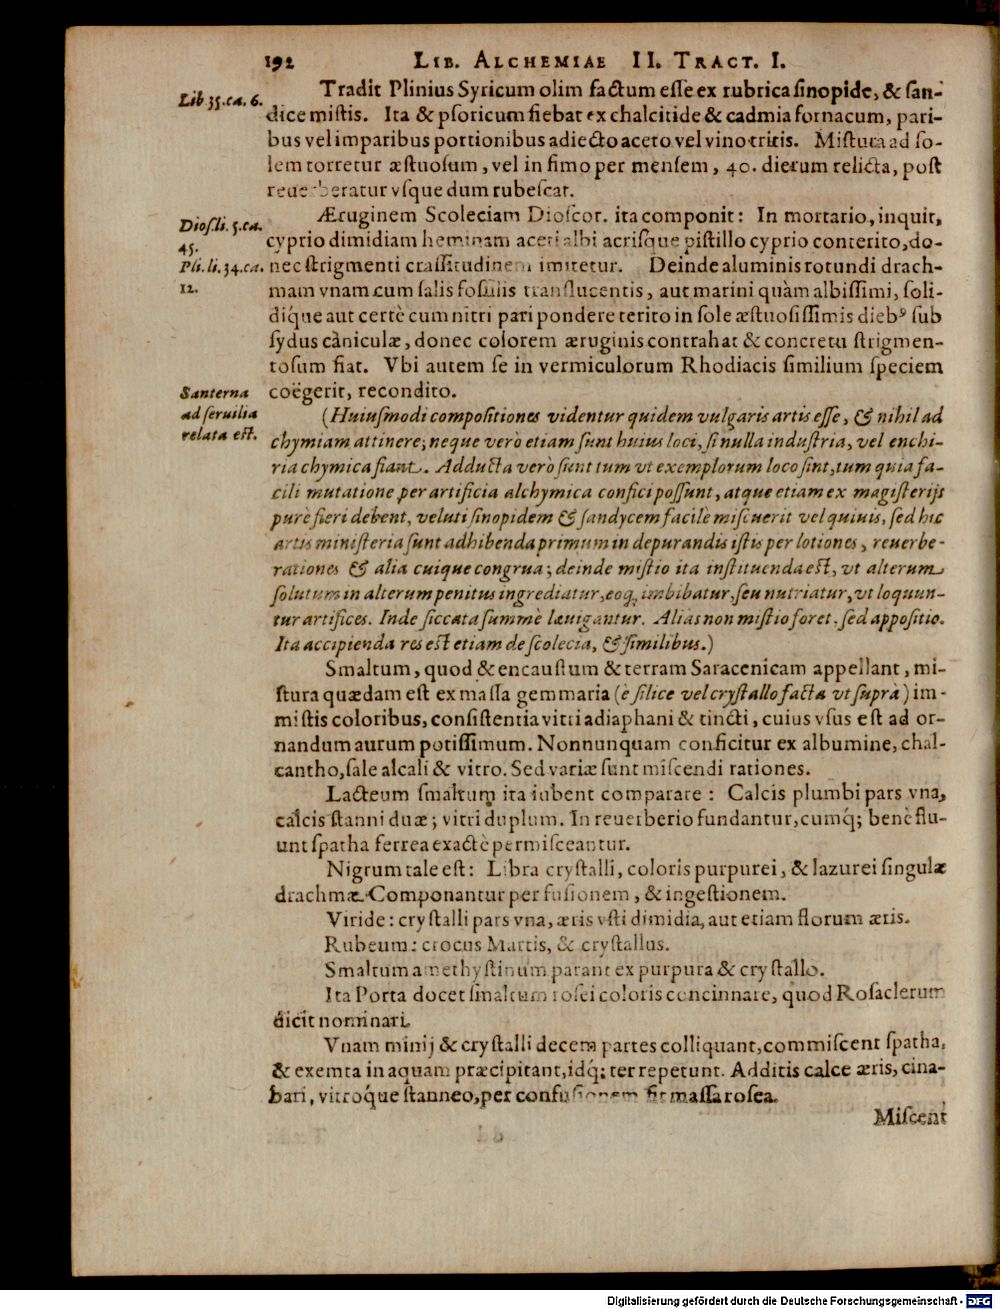 192 LIB. ALCHEMIAE II. TRACT. I.
Lib 35. ca. 6.
Tradit Plinius Syricum olim factum eſſe ex rubrica ſinopide, & ſan-
dice miſtis. Ita & pſoricum fiebat ex chalcitide & cadmia fornacum, pari-
bus vel imparibus portionibus adiecto aceto vel vino tritis. Miſtura ad ſo-
lem torretur æſtuoſum, vel in fimo per menſem, 40. dierum relicta, poſt
reuerberatur vſque dum rubeſcat.
Dioſ. li. 5. ca.
45.
Pli. li. 34. ca.
12.
Æruginem Scoleciam Dioſcor. ita componit: In mortario, inquit,
cyprio dimidiam heminam aceti albi acriſque piſtillo cyprio conterito, do-
nec ſtrigmenti craſſitudinem imitetur. Deinde aluminis rotundi drach-
mam vnam cum ſalis foſſilis translucentis, aut marini quàm albiſſimi, ſoli-
dique aut certè cum nitri pari pondere terito in ſole æſtuoſiſſimis dieb⁹ ſub
ſydus caniculæ, donec colorem æruginis contrahat & concretu ſtrigmen-
toſum fiat. Vbi autem ſe in vermiculorum Rhodiacis ſimilium ſpeciem
coëgerit, recondito.
Santerna
ad ſeruilia
relata eſt.
(Huiuſmodi compoſitiones videntur quidem vulgaris artis eſſe, & nihil ad
chymiam attinere; neque verò etiam ſunt huius loci, ſi nulla induſtria, vel enchi-
ria chymica fiant. Adducta verò ſunt tum vt exemplorum loco ſint, tum quia fa-
cili mutatione per artificia alchymica confici poſſunt, atque etiam ex magiſterijs
purè fieri debent, veluti ſinopidem & ſandycem facilè miſcuerit vel quiuis, ſed hic
artis miniſteria ſunt adhibenda primum in depurandis iſtis per lotiones, reuerbe-
rationes & alia cuique congrua; deinde miſtio ita inſtituenda eſt, vt alterum
ſolutum in alterum penitus ingrediatur, eoq; imbibatur, ſeu nutriatur, vt loquun-
tur artifices. Inde ſiccata ſummè læuigantur. Alias non miſtio foret, ſed appoſitio.
Ita accipienda res eſt etiam de ſcolecia, & ſimilibus.)
Smaltum, quod & encauſtum & terram Saracenicam appellant, mi-
ſtura quædam eſt ex maſſa gemmaria (è ſilice vel cryſtallo facta vt ſuprà) im-
miſtis coloribus, conſiſtentia vitri adiaphani & tincti, cuius vſus eſt ad or-
nandum aurum potiſſimum. Nonnunquam conficitur ex albumine, chal-
cantho, ſale alcali & vitro. Sed variæ ſunt miſcendi rationes.
Lacteum ſmaltum ita iubent comparare: Calcis plumbi pars vna,
calcis ſtanni duæ; vitri duplum. In reuerberio fundantur, cumq́; benè flu-
unt ſpatha ferrea exactè permiſceantur.
Nigrum tale eſt: Libra cryſtalli, coloris purpurei, & lazurei ſingulæ
drachmæ. Componantur per fuſionem, & ingeſtionem.
Viride: cryſtalli pars vna, æris vſti dimidia, aut etiam florum æris.
Rubeum: crocus Martis, & cryſtallus.
Smaltum amethyſtinum parant ex purpura & cryſtallo.
Ita Porta docet ſmaltum roſei coloris concinnare, quod Roſaclerum
dicit nominari.
Vnam minij & cryſtalli decem partes colliquant, commiſcent ſpatha,
& exemta in aquam præcipitant, idq́; ter repetunt. Additis calce æris, cina-
bari, vitroq́ue ſtanneo, per confuſionem fit maſſa roſea.
Miſcent
Digitalisierung gefördert durch die Deutsche Forschungsgemeinschaft - DFG